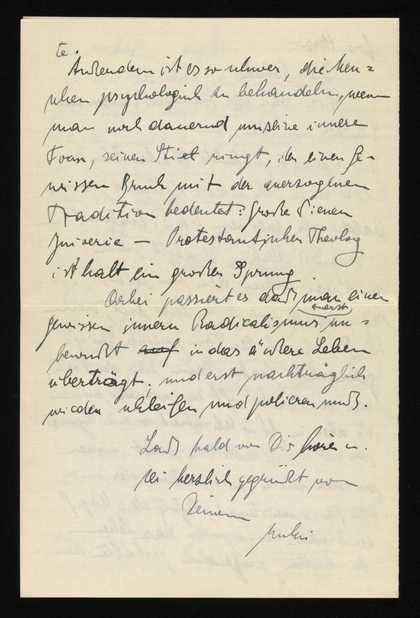 te.
Außerdem ist es so schwer, die Men=
schen psychologisch zu behandeln, wenn
man noch dauernd um seine innere
Form, seinen Stiel ringt, der einen ge-
wissen Bruch mit der anerzogenen
Tradition bedeutet: Große Wiener
— Protestantischer Theolog
ist halt ein großer Sprung.
Dabei passiert es daß man einen
zuerst
gewissen innern Radicalismus un=
bewußt auf in das äußere Leben
überträgt. und erst nachträglich
wieder schleifen und polieren muß.
Laß bald von Dir hören u.
sei herzlich gegrüßt von
Deinem